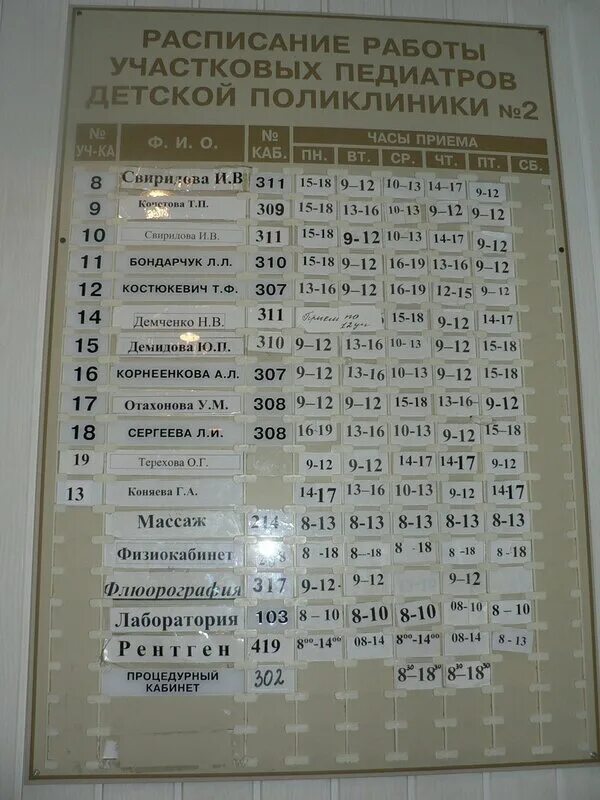 РАСПИСАНИЕ РАБОТЫ
УЧАСТКОВЫХ ПЕДИАТРОВ
ДЕТСКОЙ ПОЛИКЛИНИКИ №2
№ УЧ-КА Ф. И. О. № КАБ. ЧАСЫ ПРИЕМА
ПН. ВТ. СР. ЧТ. ПТ. СБ.
8 Свиридова И.В 311 15-18 9–12 10–13 14–17 9-12
9 Кочетова Т.П. 309 15-18 13-16 10-13 9–12 9–12
10 Свиридова И.В. 311 15-18 9-12 10–13 14-17 9–12
11 БОНДАРЧУК Л.Л. 310 15-18 9–12 16-19 13-16 9–12
12 КОСТЮКЕВИЧ Т.Ф. 307 13-16 9–12 16-19 12-15 9–12
14 Демченко Н.В. 311 Прием по 15-18 9–12 14-17
15 Демидова Ю.П. 310 9–12 13-16 10-13 9–12 15-18
16 КОРНЕЕНКОВА А.Л. 307 9–12 13-16 10–13 9–12 15-18
17 Отахонова У.М. 308 9–12 9–12 15-18 13-16 9–12
18 СЕРГЕЕВА Л.И. 308 16-19 13-16 10–13 9–12 15–18
19 Терехова О.Г. 9-12 9-12 14-17 14-17 9-12
13 Коняева Г.А. 14-17 13–16 10-13 9-12 14-17
Массаж 214 8-13 8-13 8-13 8-13 8-13
Физиокабинет 8 -18 8—18 8 -18 8 -18 8 -18
Флюорография 317 9-12 9–12 9–12
Лаборатория 103 8 – 10 8-10 8-10 08-10 8 – 10
Рентген 419 8⁰⁰-14⁰⁰ 08-14 8⁰⁰-14⁰⁰ 08-14 8 - 13
ПРОЦЕДУРНЫЙ КАБИНЕТ 302 8³⁰–18³⁰ 8³⁰–18³⁰